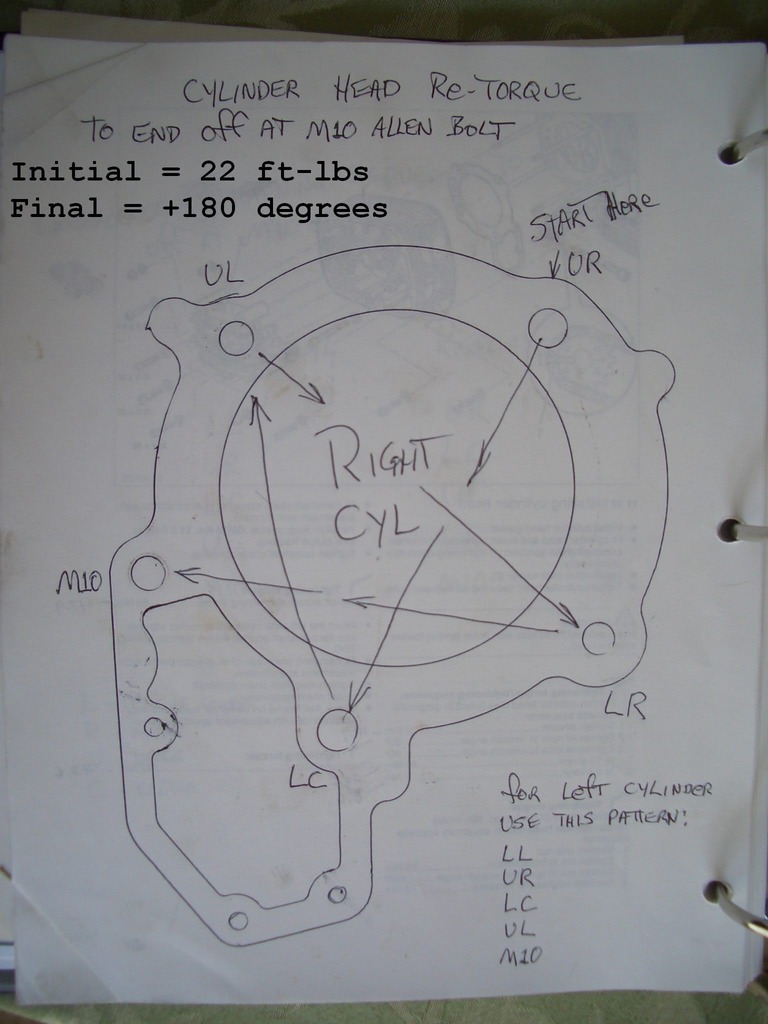 CYLINDER HEAD RE-TORQUE
TO END OFF AT M10 ALLEN BOLT
Initial = 22 ft-lbs
Final = +180 degrees
START HERE
UR
UL
RIGHT
CYL
M10
LR
LC
FOR LEFT CYLINDER
USE THIS PATTERN:
LL
UR
LC
UL
M10